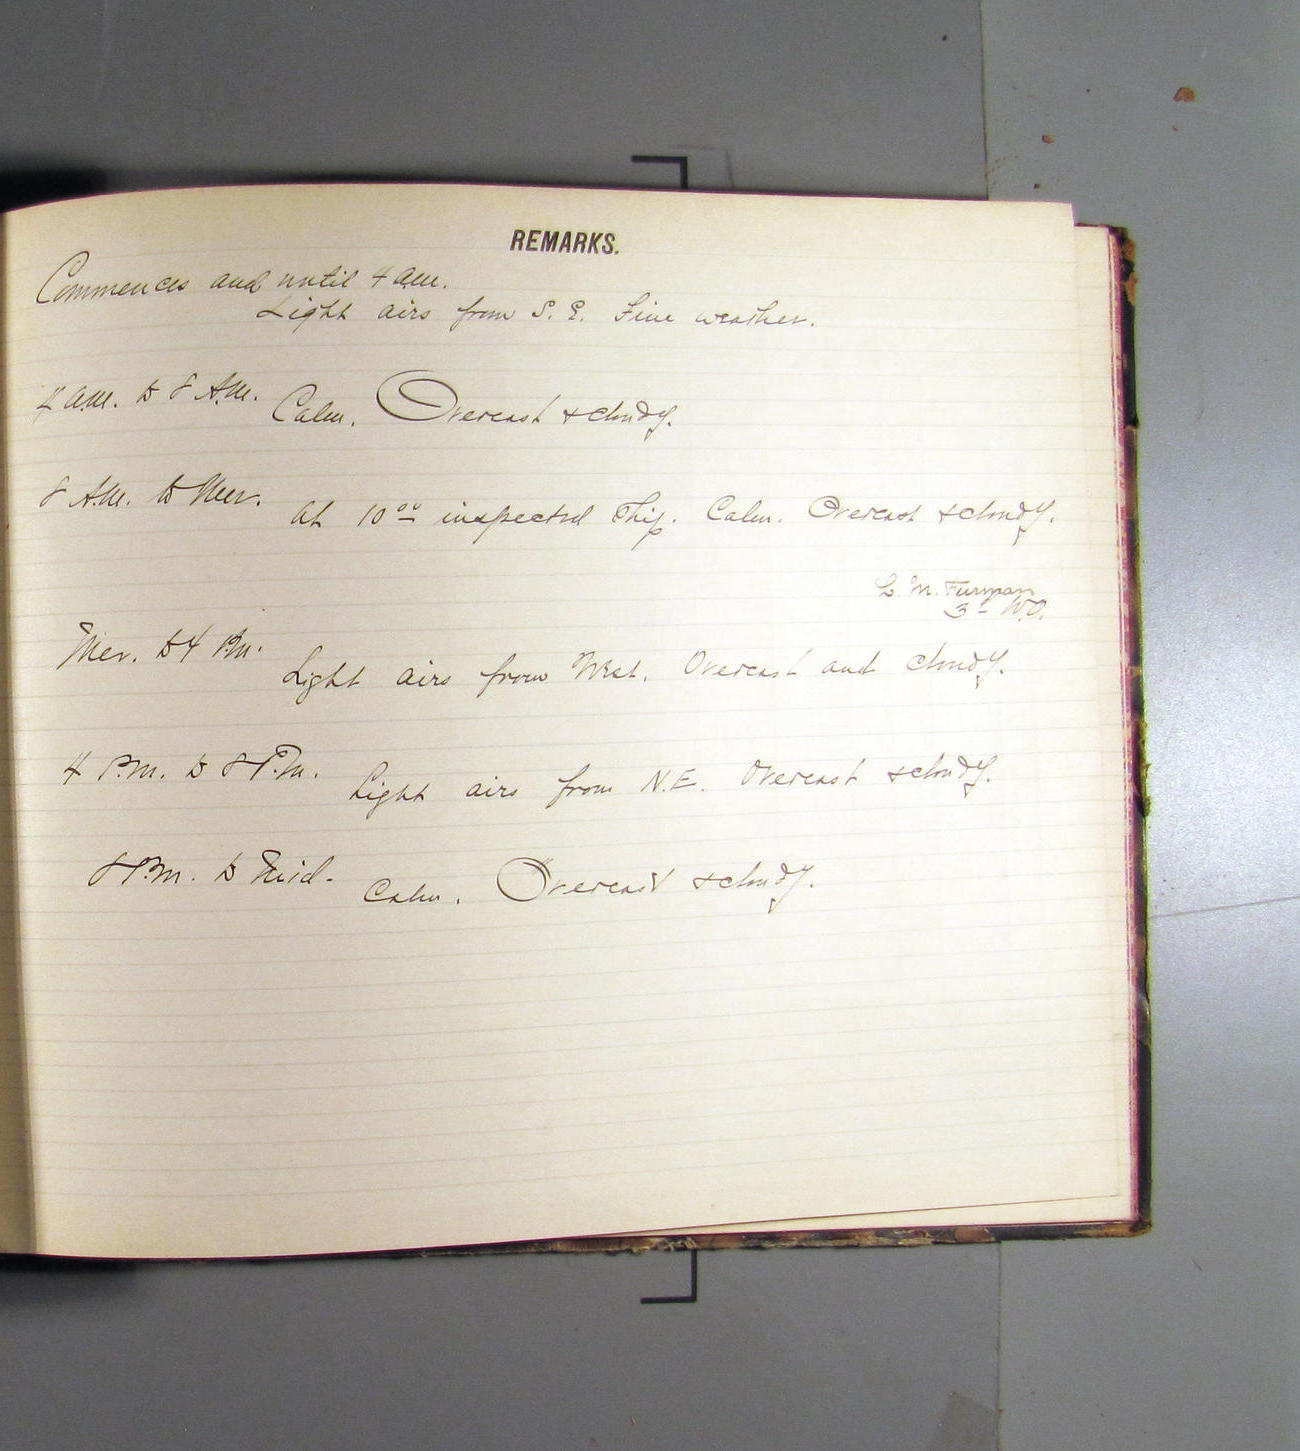 REMARKS.
Commences and until 4 a.m.
Light airs from S. E. Fine weather.
4 a.m. to 8 A.M. Calm. Overcast & cloudy.
8 A.M. to Mer. At 10 00 inspected Ship. Calm. Overcast & cloudy.
L. M. Furman
3d W.O.
Mer. to 4 P.m. Light airs from West. Overcast and cloudy.
4 P.m. to 8 P.m. Light airs from N.E. Overcast & cloudy.
8 P.m. to Mid. Calm. Overcast & cloudy.